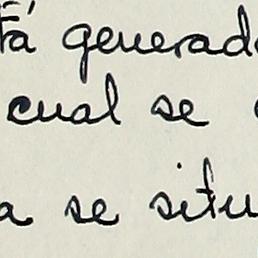 tá generad
cual se
a se situ